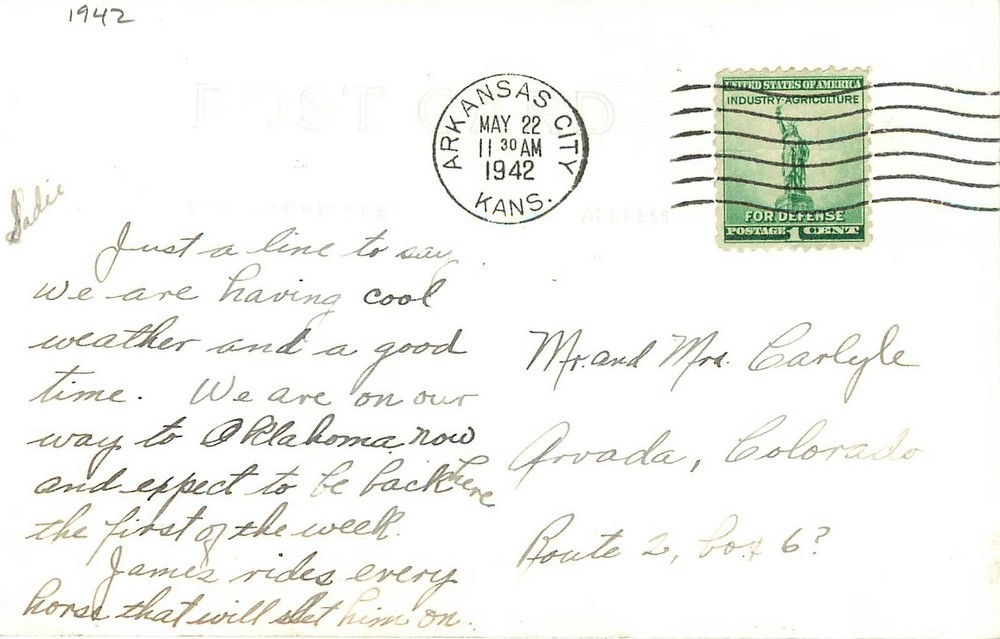 1942
POST CARD
ARKANSAS CITY
MAY 22
11 30 AM
1942
KANS.
UNITED STATES OF AMERICA
INDUSTRY·AGRICULTURE
FOR DEFENSE
POSTAGE 1 CENT
CORRESPONDENCE
ADDRESS
Sadie
Just a line to say
we are having cool
weather and a good
time. We are on our
way to Oklahoma now
and expect to be back here
the first of the week.
James rides every
horse that will let him on.
Mr. and Mrs. Carlyle
Arvada, Colorado
Route 2, box 6?